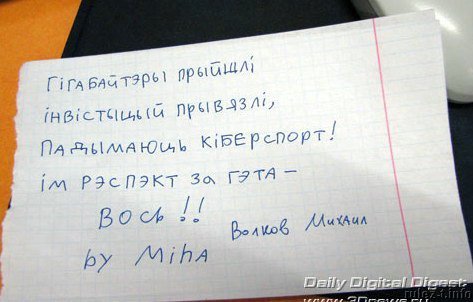 Гігабайтэры прыйшлі
інвістыцый прывязлі,
падымаюць кіберспорт!
ім рэспэкт за гэта –
Вось!!
Волков Михаил
by Miha
Daily Digital Digest
www.3dnews.ru
rulez-t.info